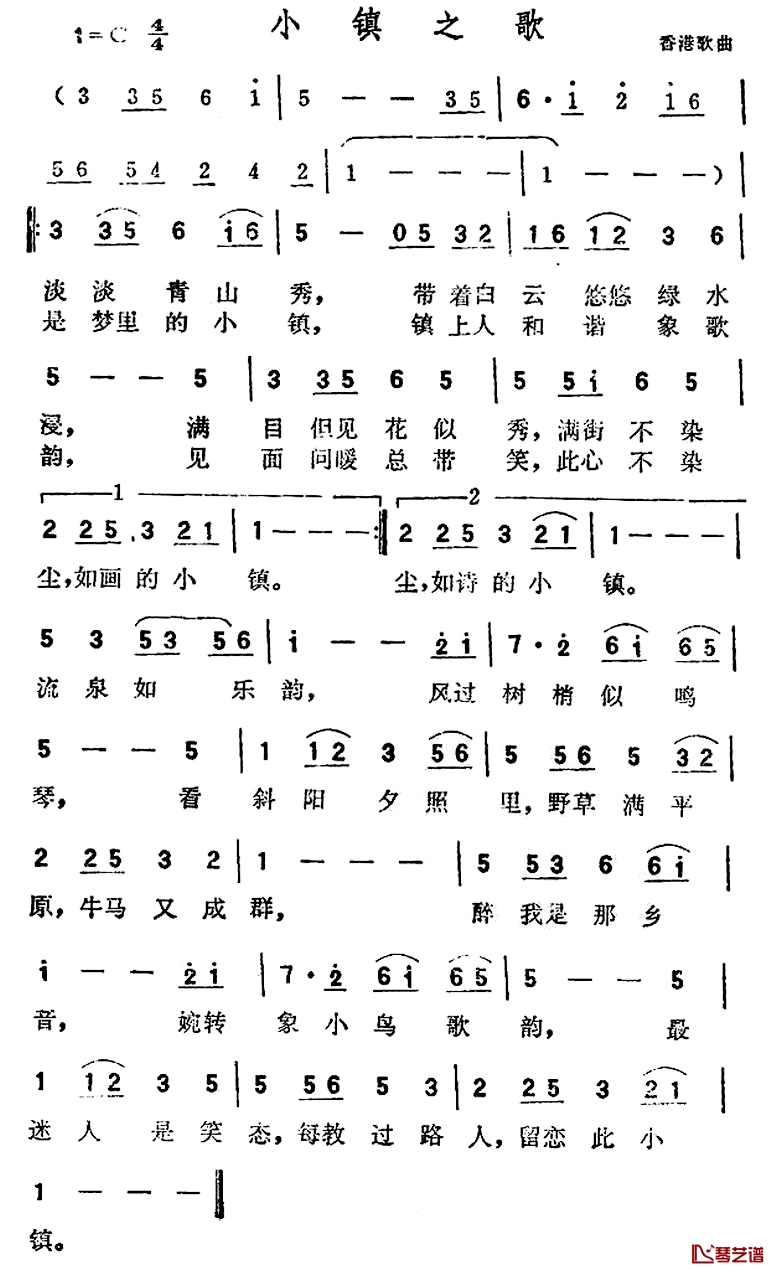 小镇之歌
1=C 4/4
香港歌曲
( 3 35 6 i | 5 — — 35 | 6· i 2 i6 |
56 54 2 4 2 | 1 — — — | 1 — — — ) |
‖: 3 35 6 i6 | 5 — 05 32 | 16 12 3 6 |
淡淡青山秀，带着白云悠悠绿水
是梦里的小镇，镇上人和谐象歌
5 — — 5 | 3 35 6 5 | 5 5i 6 5 |
浸，满目但见花似秀，满街不染
韵，见面问暖总带笑，此心不染
1 2
2 25 . 3 21 | 1 — — — :‖ 2 25 3 21 | 1 — — — |
尘，如画的小镇。尘，如诗的小镇。
5 3 53 56 | i — — 2i | 7· 2 6i 65 |
流泉如乐韵，风过树梢似鸣
5 — — 5 | 1 12 3 56 | 5 56 5 32 |
琴，看斜阳夕照里，野草满平
2 25 3 2 | 1 — — — | 5 53 6 6i |
原，牛马又成群，醉我是那乡
i — — 2i | 7· 2 6i 65 | 5 — — 5 |
音，婉转象小鸟歌韵，最
1 12 3 5 | 5 56 5 3 | 2 25 3 21 |
迷人是笑态，每教过路人，留恋此小
1 — — — ‖
镇。
琴艺谱